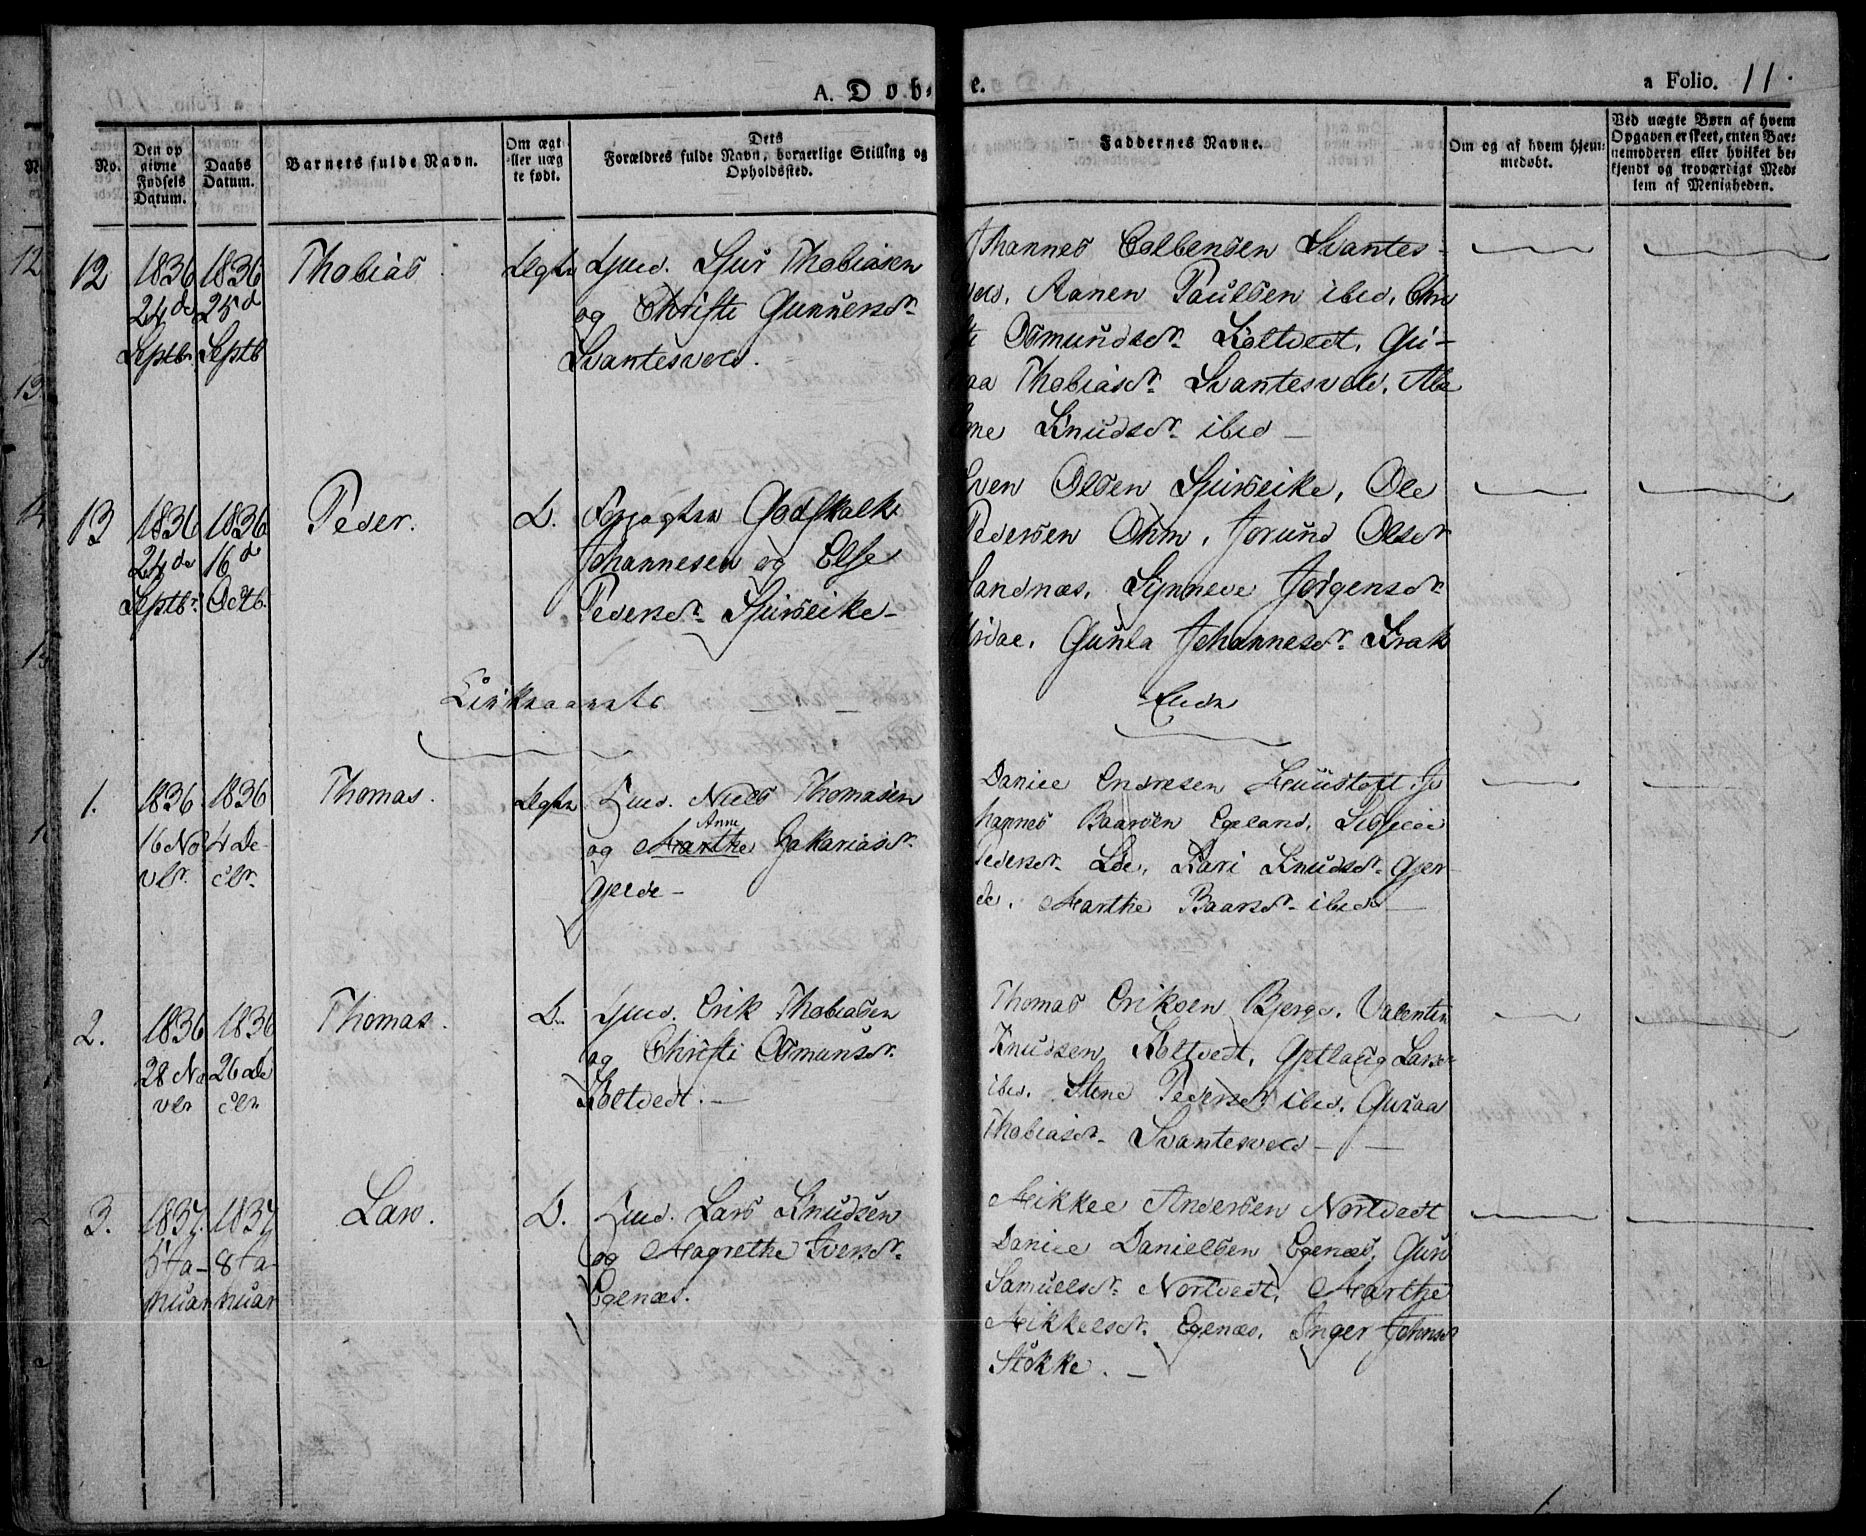 A. Døb-
e.
a Folio. 11.
No.
Den op
givne
Fødsels
Datum.
Daabs
Datum.
Barnets fulde Navn.
Om ægt
eller uæg
te født.
Dets
Forældres fulde Navn, borgerlige Stilling og
Opholdssted.
Faddernes Navne.
Om og af hvem hjem-
medøbt.
Ved uægte Børn af hvem
Opgaven er skeet, enten Bar-
nemoderen eller hvilket be-
kjendt og troværdigt Med-
lem af Menigheden.
12
1836
24de
Septbr.
1836
25d
Septb
Thobias
Ægte
Sjur Thobiasen
og Christi Gunnersdr
Svantesvold.
Johannes Colbensen Svantes-
vold, Aanen Paulsen ibid, Chri
sti Osmundsdr. Koltvedt, Gu-
raa Thobiasdr. Svantesvold,
Knudsdr. ibid
13
1836
24de
Septbr
1836
16d
Octb.
Peder.
D.
Godskalk
Johannesen og Else
Pedersdr. Sjurseike
Sven Olsen Sjurseike, Ole
Pedersen Ohm, Jorund Olsdr
Sandnæs, Synneve Jørgensdr
Gunla Johannesdr. Krak
1.
1836
16 No
vbr.
1836
4 De-
cbr.
Thomas.
Ægte
Niels Thomasen
Anne
og Marthe Zakariasdr.
Gjerde
Daniel Endresen Jo
hannes Baarsen Egeland,
Pedersdr. Løe, Kari Knudsdr. Gjer
de, Marthe Baarsdr. ibid
2.
1836
28 No
vbr
1836
26 De
cbr
Thomas.
D.
Erik Thobiasen
og Christi Osmunsdr.
Koltvedt.
Thomas Eriksen Bjerge, Valentin
Knudsen Koltvedt, Larsdr
ibid. Stine Pedersdr ibid, Guraa
Thobiasdr. Svantesvold
3.
1837
5 Ja-
nuar
1837
8 Ja-
nuar
Lars.
D.
Lars Knudsen
og Magrethe Iversdr.
Egenæs.
Mikkel Andersen Nortvedt
Daniel Danielsen Egenæs, Guro
Samuelsdr. Nortvedt, Marthe
Mikkelsdr. Egenæs, Inger Johnsdr
Stokke.